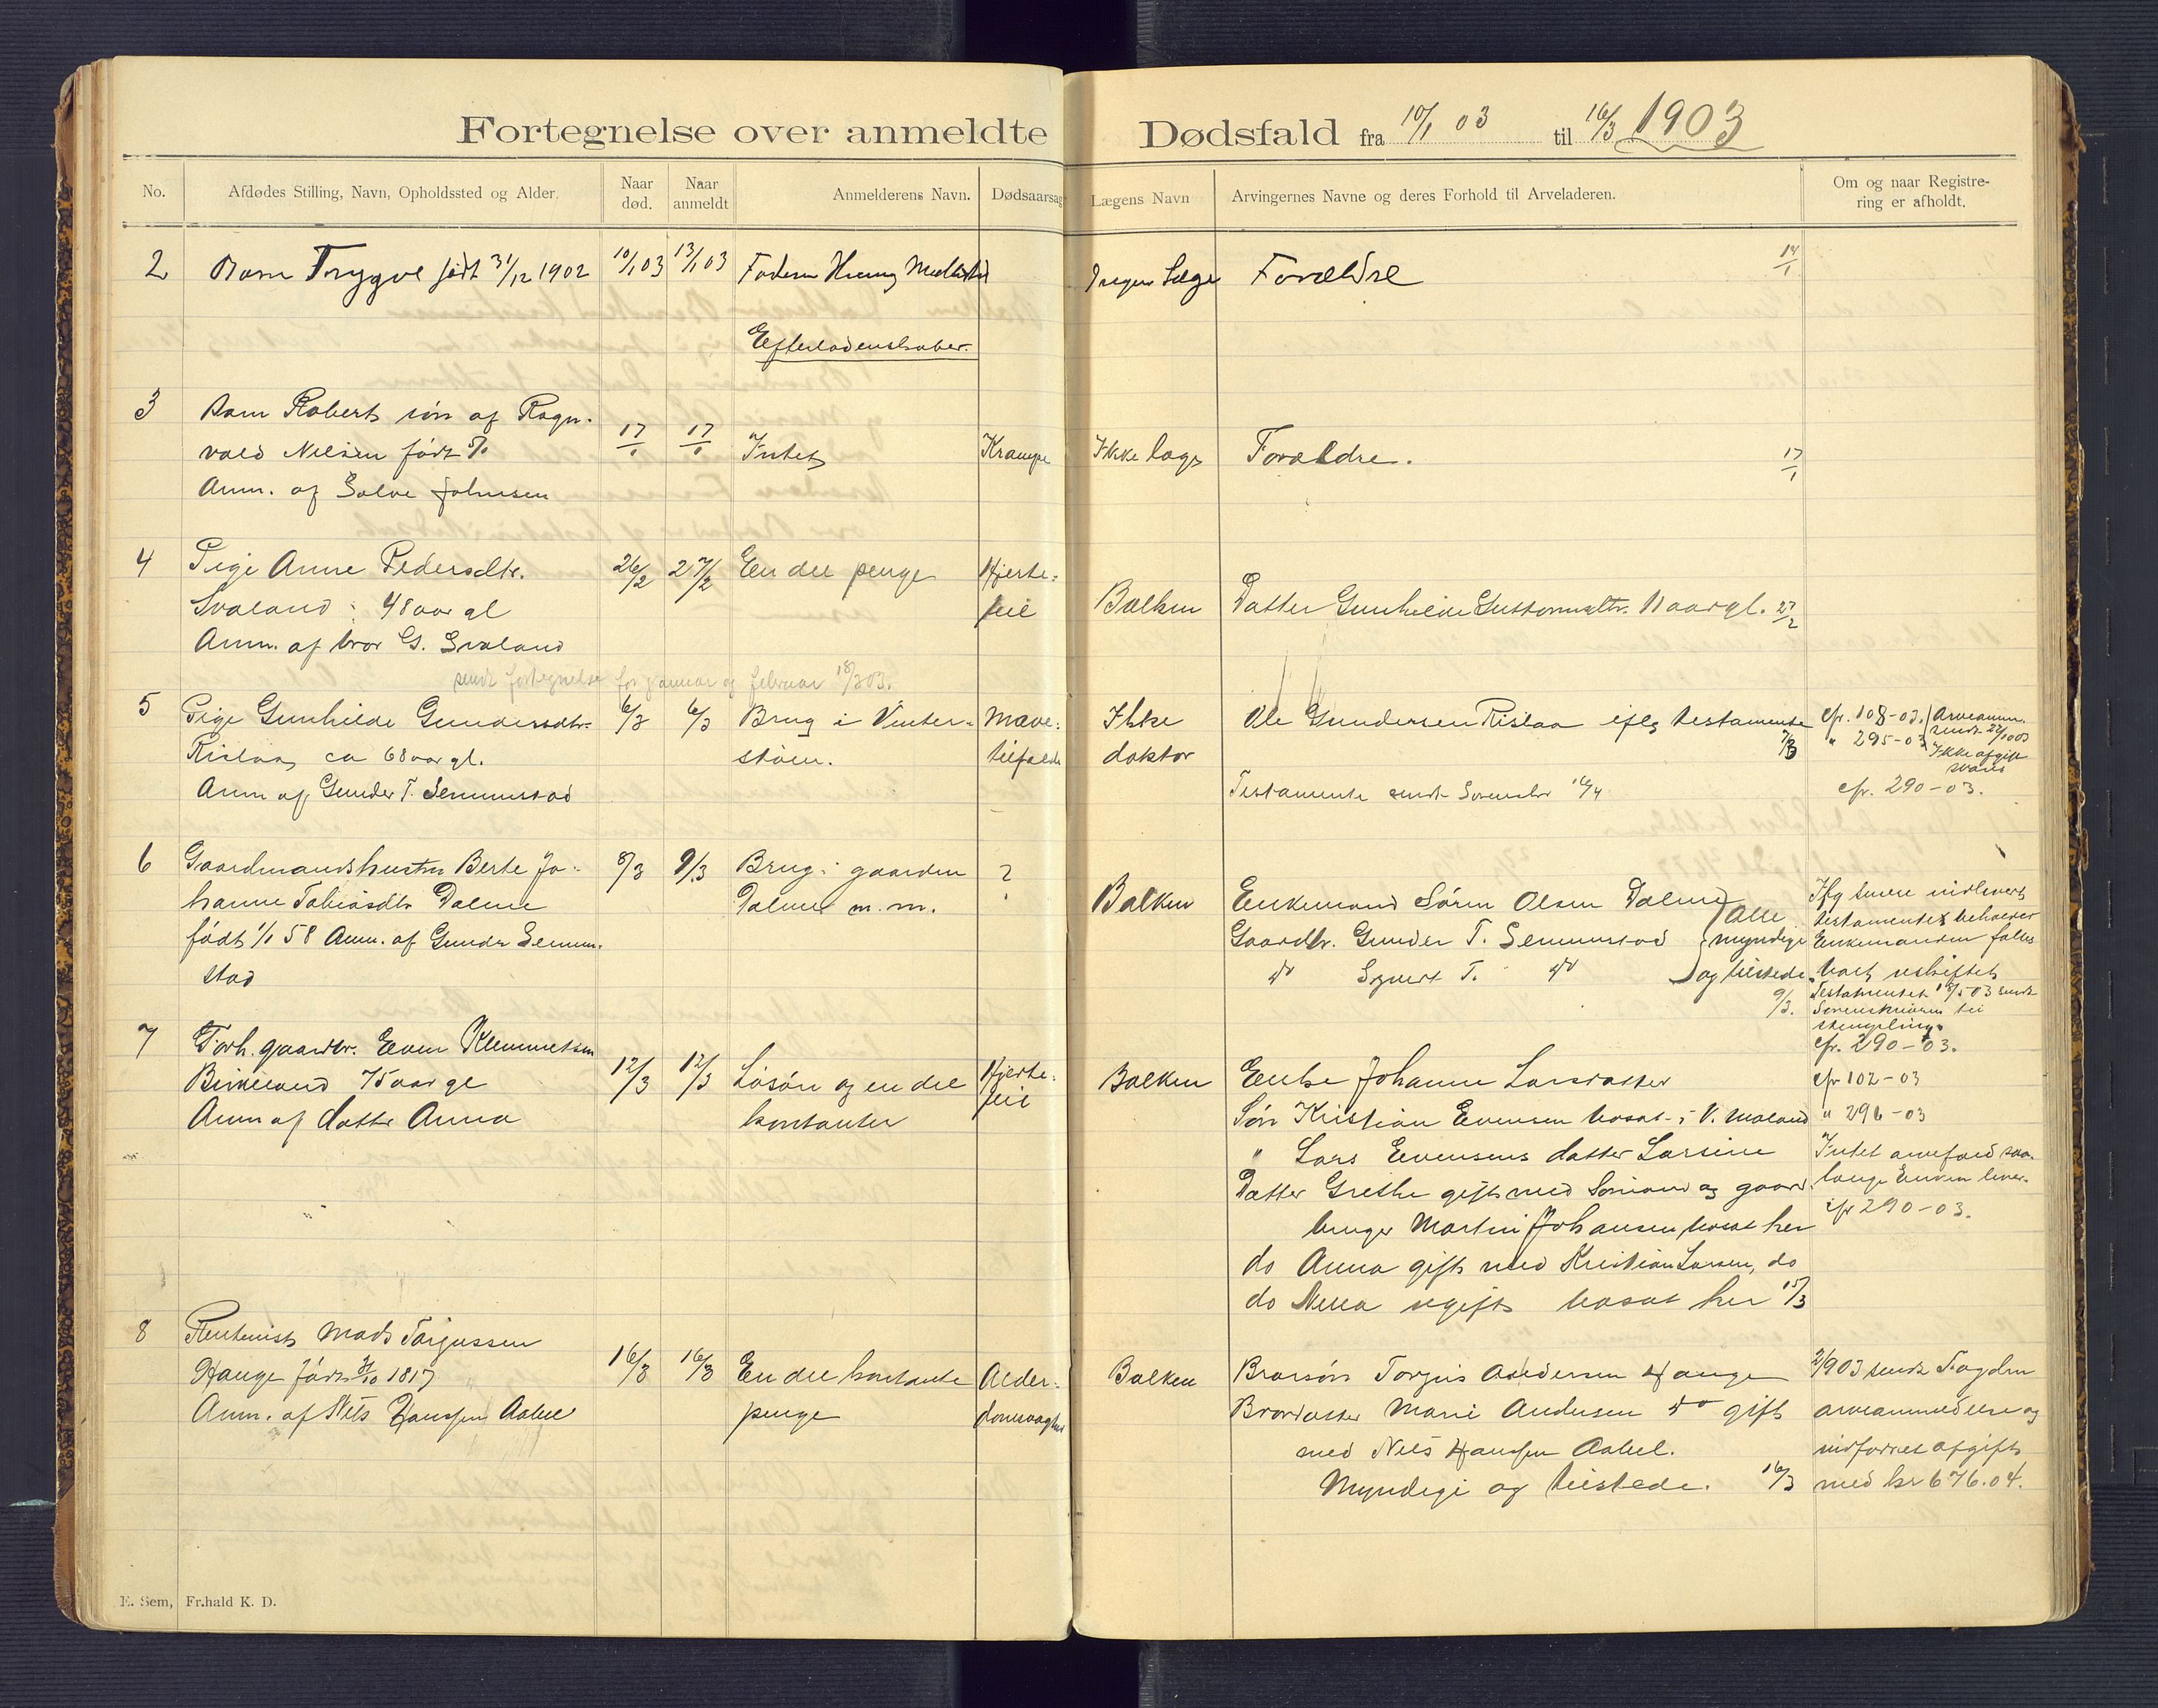 Fortegnelse over anmeldte Dødsfald fra 10/1 03 til 16/3 1903
No. Afdødes Stilling, Navn, Opholdssted og Alder. Naar død. Naar anmeldt Anmelderens Navn. Dødsaarsag Lægens Navn Arvingernes Navne og deres Forhold til Arveladeren. Om og naar Registrering er afholdt.
2 Barn Trygve født 31/12 1902 10/1 03 13/1 03 Faderen Ingen Læge Forældre 14/1
Efterladenskaber.
3 Barn Robert søn af Ragn-
vald Nilsen født 5/1 17/1 17/1 Intet Krampe Ikke læge Forældre. 17/1
Anm. af Salve Johnsen
4 Pige Anne Pedersdtr. 26/2 27/2 En del penge Hjerte-
Svaland 48 aar gl feil Balken Datter Gunhilde Guttormsdtr. 11 aar gl. 27/2
Anm. af bror G. Svaland
sendt fortegnelse for januar og februar 18/3 03.
5 Pige Gunhilde Gundersdtr. 6/3 6/3 Brug i Vinter- Mave- Ikke Ole Gundersen Rislaa iflg testamente cfr. 108-03. Arveanm.
sendt 22/10 03
7/3 " 295-03 Ikke afgift
svares
Rislaa ca 68 aar gl. støen. tilfælde doktor
Anm af Gunder T. Senumstad Testamente sendt Sorenskr 16/4 cfr. 290-03.
6 Gaardmandshustru Berte Jo- 8/3 9/3 Brug i gaarden ?
hanne Tobiasdtr Dalene Dalene m.m. Balken Enkemand Søren Olsen Dalene
født 1/1 58 Anm. af Gunder Senum- Gaardbr. Gunder T. Senumstad
stad do Sigvert T. do
Alle
myndige
og tilstede
9/3.
Iflg senere indlevert
testamente beholder
Enkemanden fælles
boet uskiftet
Testamentet 18/5 03 sendt
Sorenskriveren til
stempling.
cfr. 290-03.
7 Forh. gaardbr. Even Klemmetsen
Birkeland 75 aar gl 12/3 12/3 Løsøre og en del Hjerte- Balken Enke Johanne Larsdatter cfr 102-03
Anm af datter Anna kontanter feil Søn Kristian Evensen bosat i V. Moland " 296-03
" Lars Evensens datter Larsine Intet arvefald saa-
Datter Grethe gift med Sømand og gaard- længe Enken lever.
bruger Martin Johansen bosat her cfr 290-03.
do Anna gift med Kristian Larsen, do
do ugift bosat her 15/3
8 Rentenist Mads Torjussen
Hauge født 31/10 1817 16/3 16/3 En del kontante Alder- Balken Brorsøn Torjus Andersen Hauge 2/9 03 sendt Fogden
Anm. af Nils Hanssen Aabel penge domssvaghed Brordatter Marie Andersen do gift arveanmeldelse og
med Nils Hanssen Aabel. indfordret afgift
Myndige og tilstede. 16/3 med kr 676.04.
E. Sem, Fr.hald K. D.